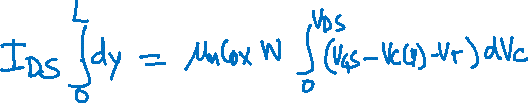 I_{DS} \int_{0}^{L} dy = \mu_n C_{ox} W \int_{0}^{V_{DS}} (V_{GS} - V_C(y) - V_T) dV_C